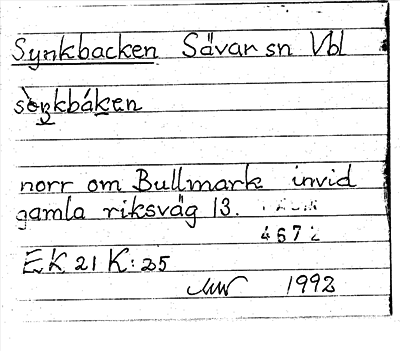 Synkbacken Sävar sn Vbl
sèŋkbák̲en
norr om Bullmark invid
gamla riksväg 13.
4672
EK 21 K: 25
1992